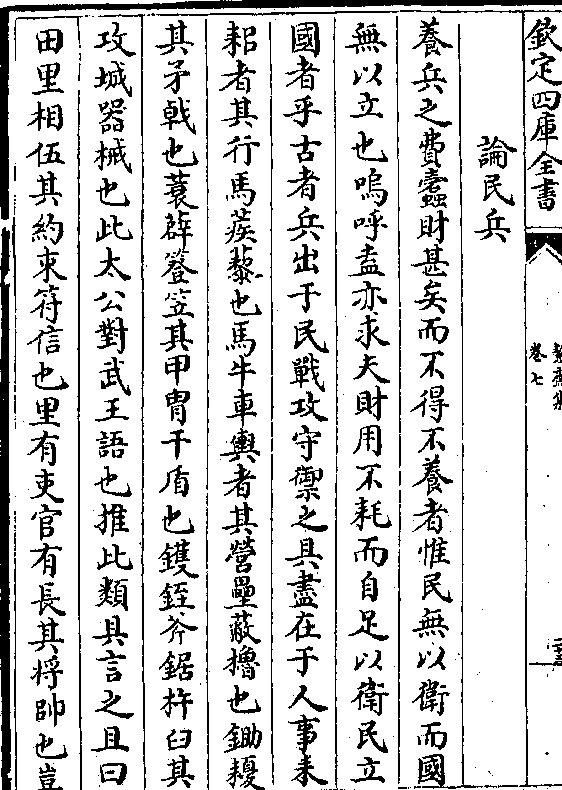 欽定四庫全書
卷七
論民兵
養兵之費蠹財甚矣而不得不養者惟民無以衛而國
無以立也嗚呼盍亦求夫財用不耗而自足以衛民立
國者乎古者兵出于民戰攻守禦之具盡在于人事耒
耜者其行馬蒺藜也馬牛車輿者其營壘蔽櫓也鋤耰
其矛戟也蓑薜簦笠其甲冑干盾也钁鍤斧鋸杵臼其
攻城器械也此太公對武王語也推此類具言之且曰
田里相伍其約束符信也里有吏官有長其將帥也豈